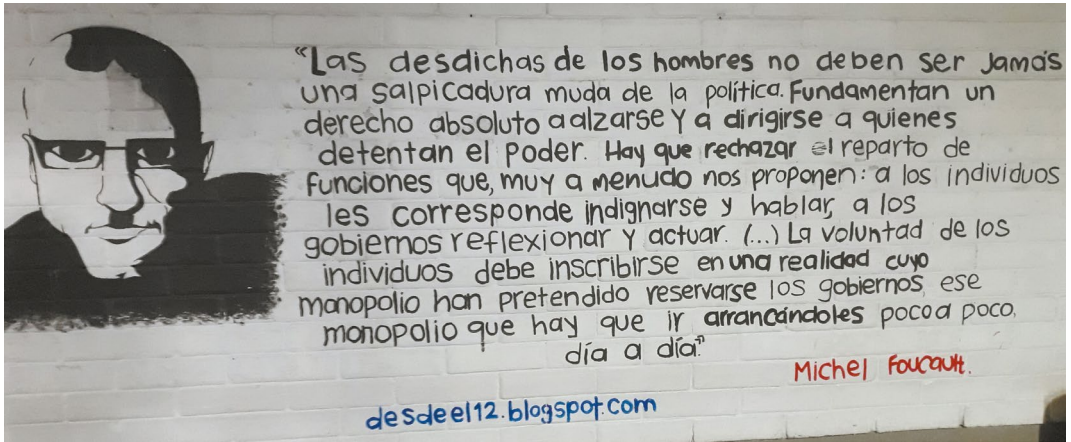 "Las desdichas de los hombres no deben ser Jamás
una salpicadura muda de la política. Fundamentan un
derecho absoluto a alzarse y a dirigirse a quienes
detentan el poder. Hay que rechazar el reparto de
funciones que, muy a menudo nos proponen: a los individuos
les corresponde indignarse y hablar, a los
gobiernos reflexionar y actuar. (...) La voluntad de los
individuos debe inscribirse en una realidad cuyo
monopolio han pretendido reservarse los gobiernos, ese
monopolio que hay que ir arrancándoles poco a poco,
día a día."
Michel Foucault.
desdeel12.blogspot.com